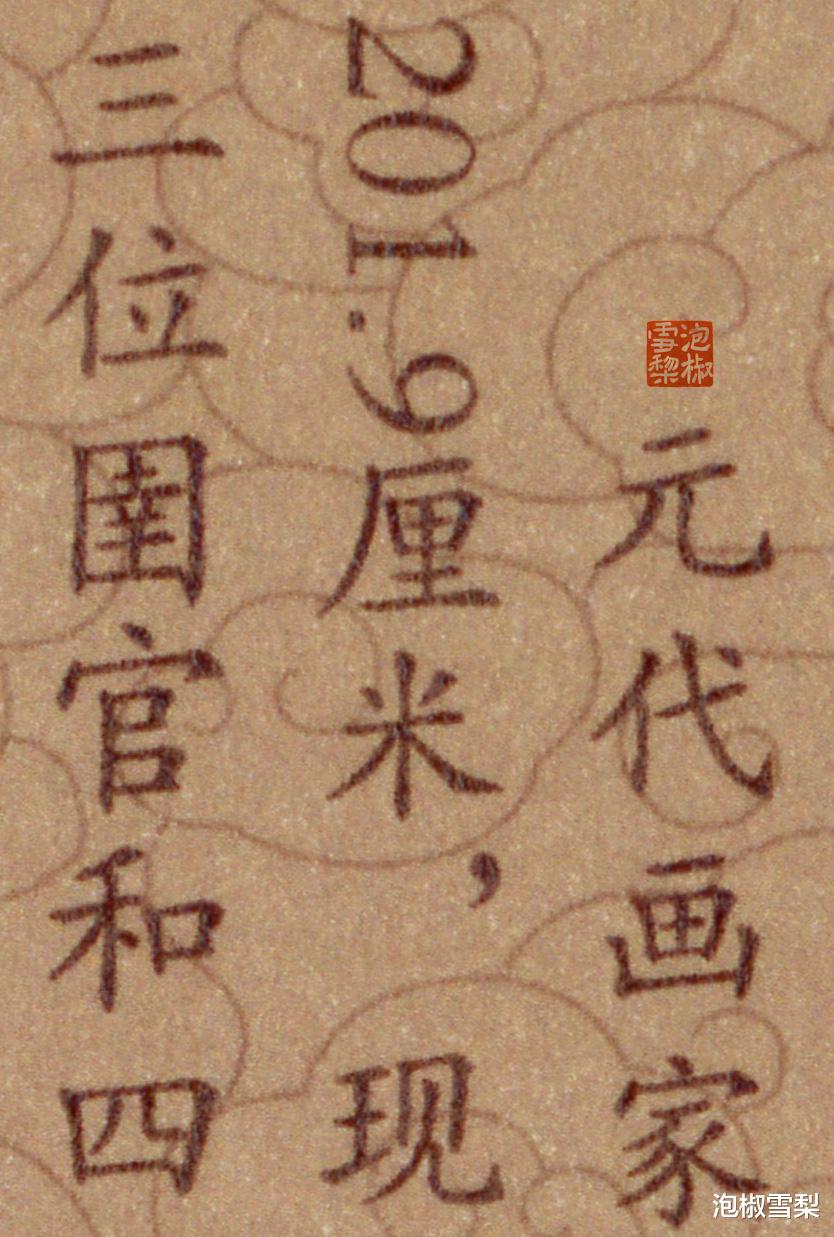 元代画家
201.9厘米，现
三位圉官和四
泡椒
雪梨
泡椒雪梨